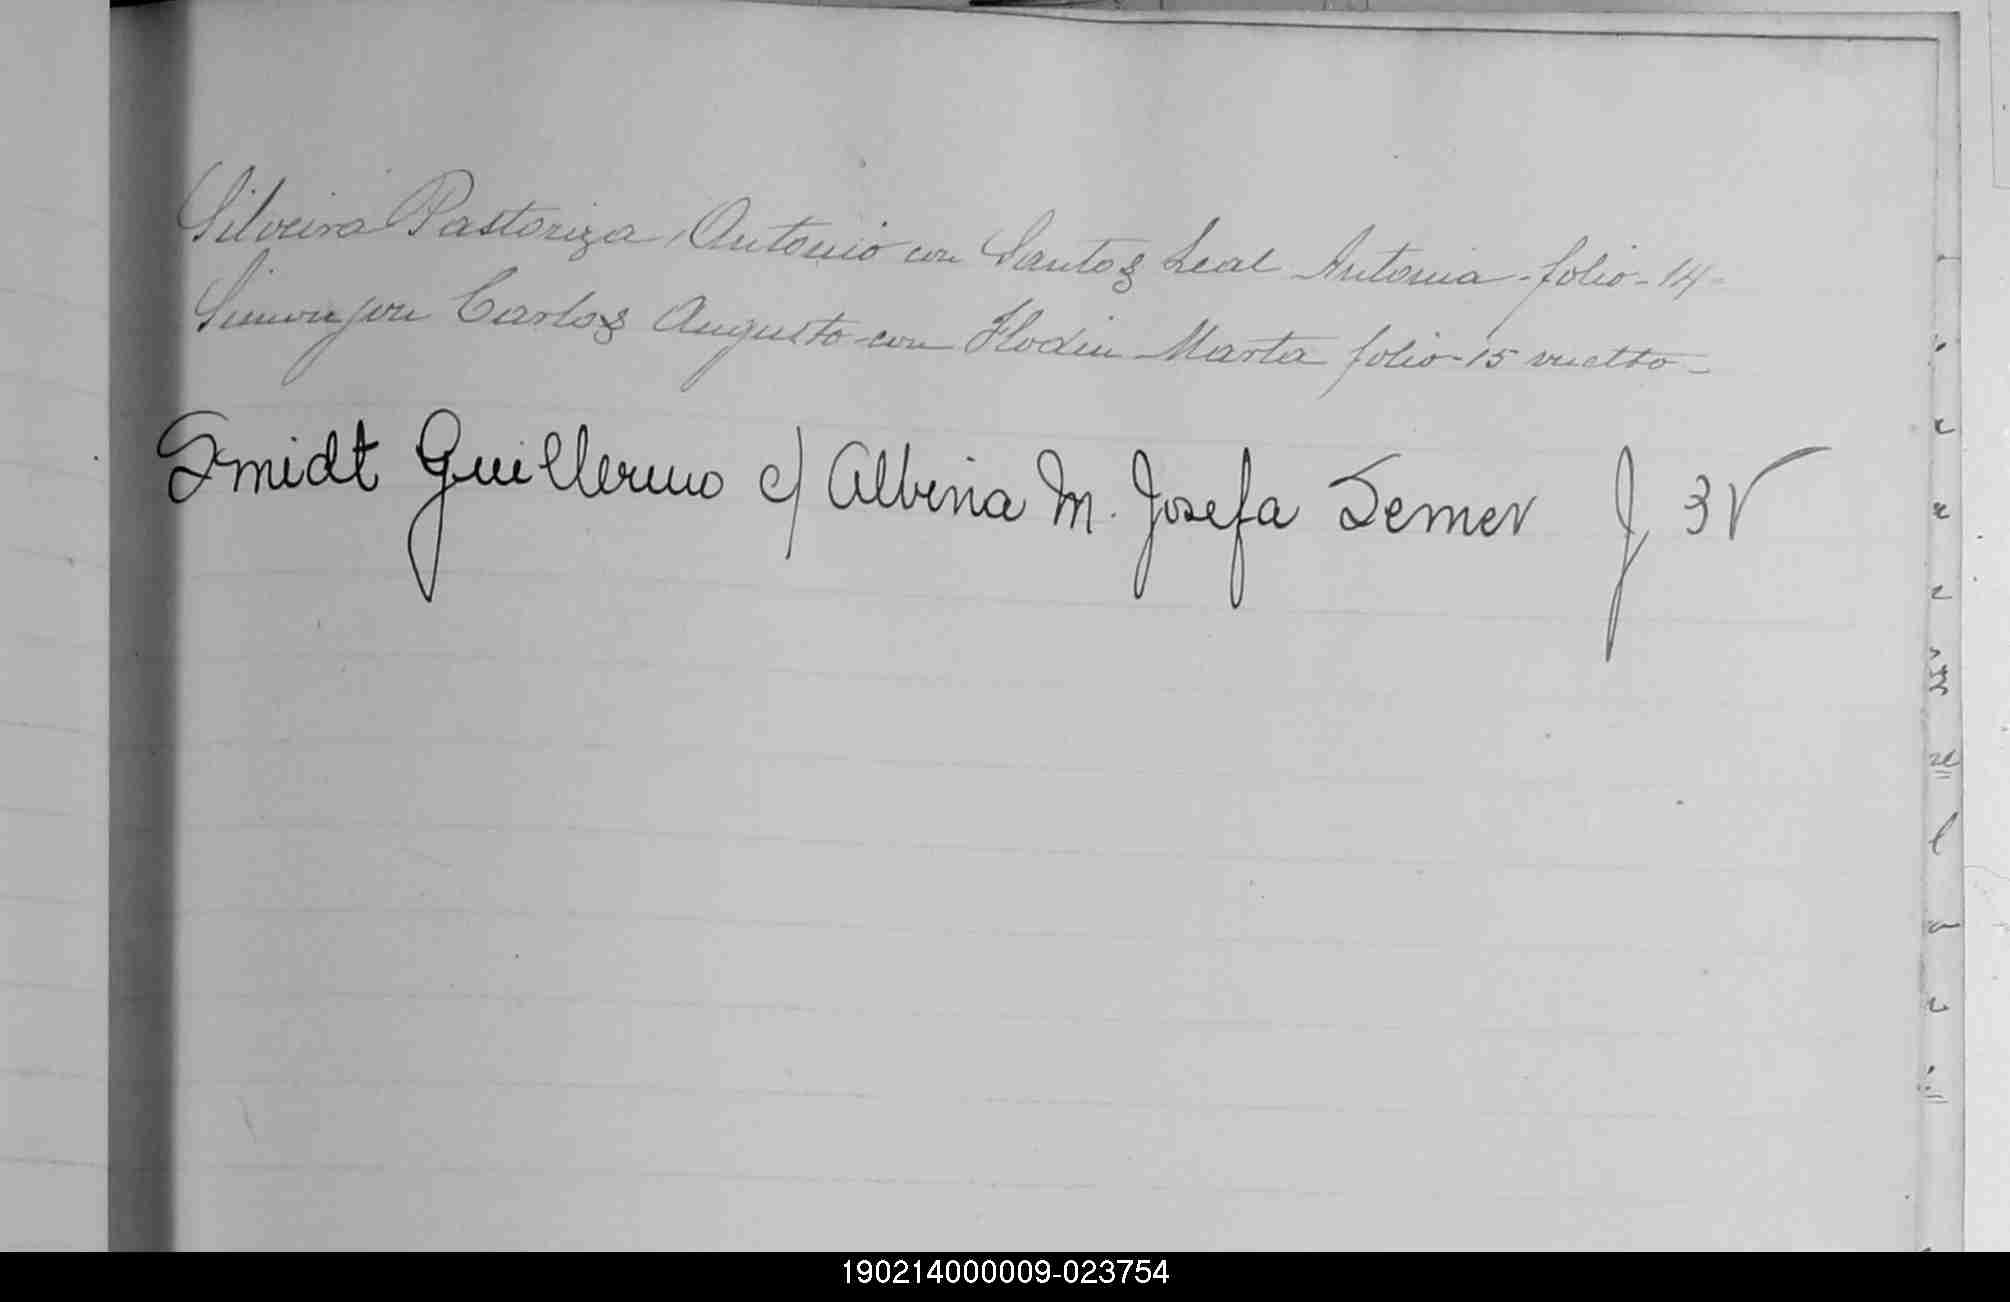 Silveira Pastoriza, Antonio con Santos Leal Antonia - folio - 14 -
Simonjon Carlos Augusto con Flodin Marta folio - 15 vuelto -
Smidt Guillermo c/ Albina M. Josefa Semer f 3V
190214000009-023754